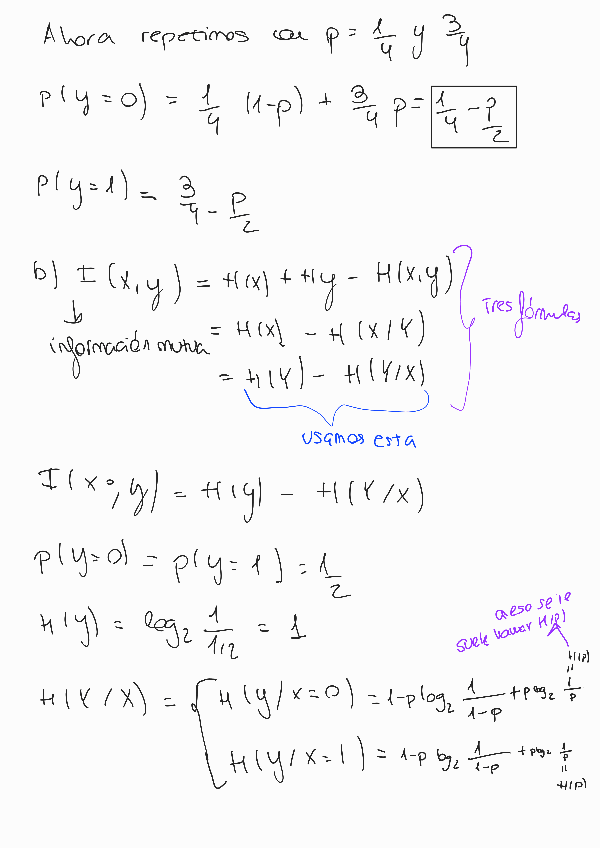 Ahora repetimos con p = 1/4 y 3/4
p(y=0) = 1/4 (1-p) + 3/4 p = 1/4 - p/2
p(y=1) = 3/4 - p/2
b) I(x,y) = H(x) + Hy - H(x,y)
= H(x) - H(X/Y)
información mutua
= H(Y) - H(Y/X)
Tres fórmulas
usamos esta
I(x;y) = H(y) - H(Y/X)
p(y=0) = p(y=1) = 1/2
H(y) = log2 1/1/2 = 1
a eso se le
suele llamar H(p)
H(p)
=
H(Y/X) = { H(y/x=0) = 1-p log2 1/1-p + p log2 1/p
H(y/x=1) = 1-p log2 1/1-p + p log2 1/p
=
H(p)